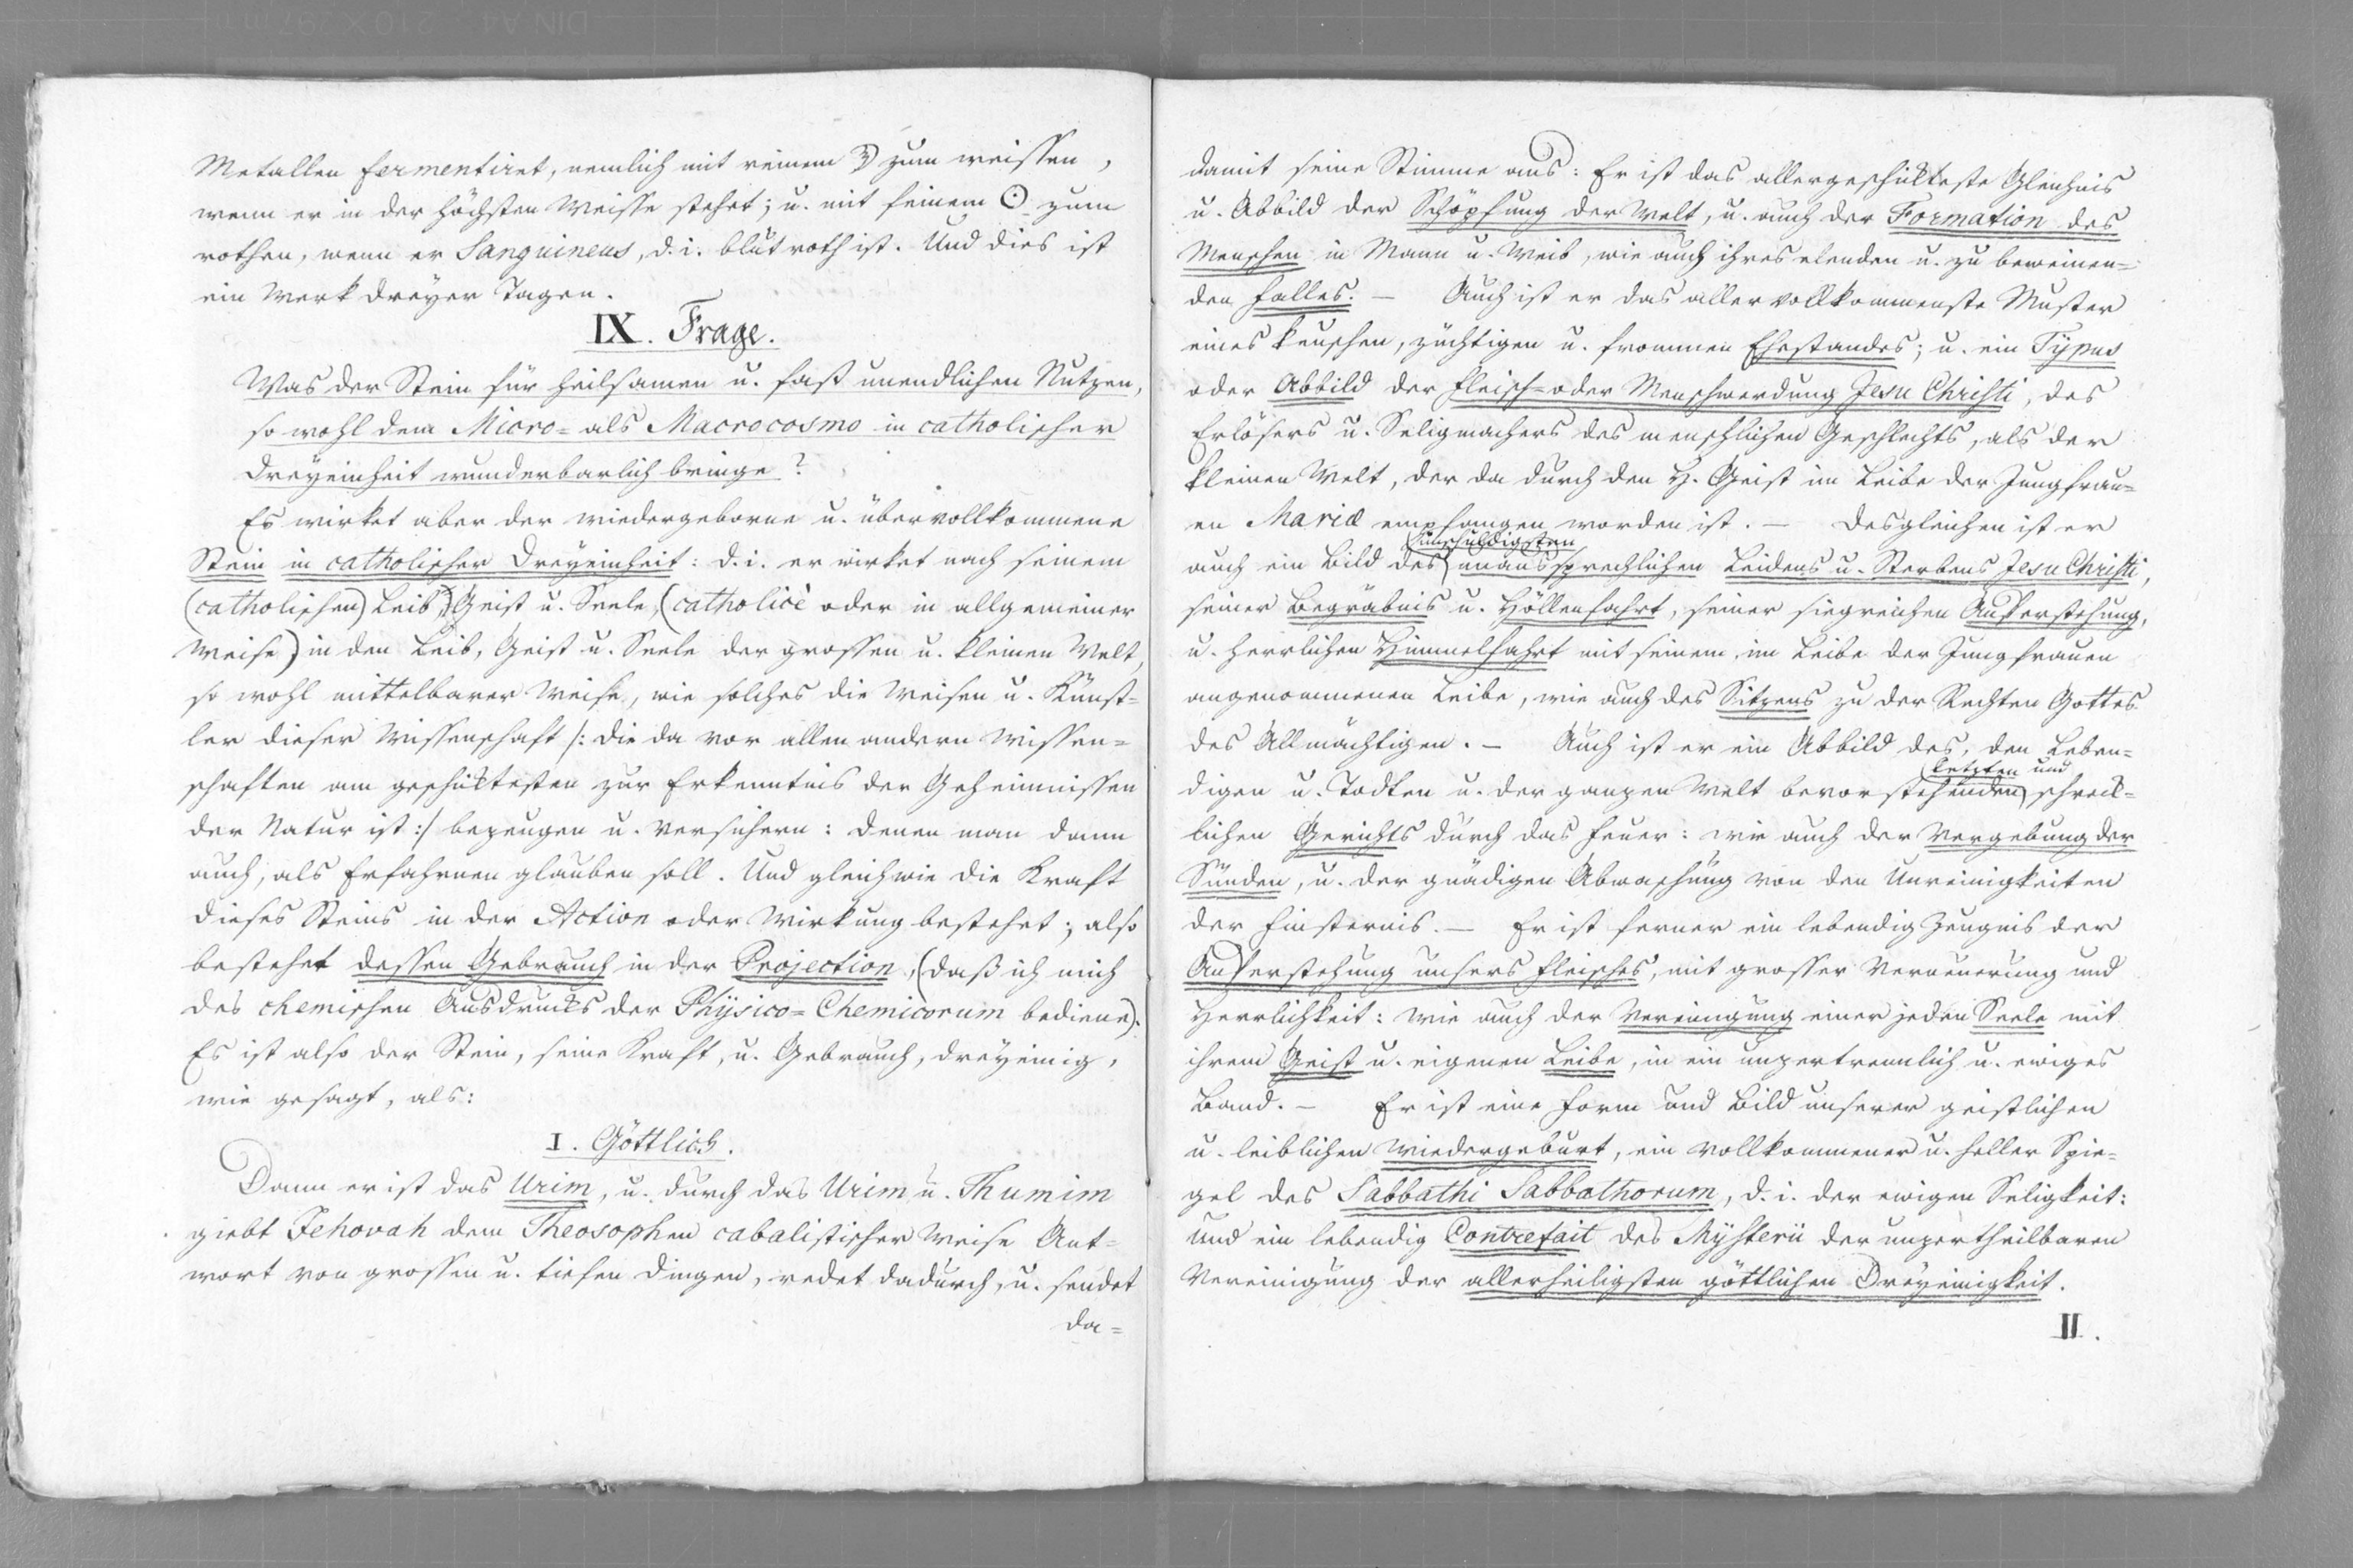 Metallen fermentiret, nemlich mit reinem ☽ zum weissen,
wenn er in der höchsten Weisse stehet; u. mit feinem ☉ zum
rothen, wenn er Sanguineus, d. i. blutroth ist. Und dies ist
ein Werk dreyer Tagen.
IX. Frage.
Was der Stein für heilsamen u. fast unendlichen Nutzen,
so wohl dem Micro= als Macrocosmo in catholischer
Dreyeinheit wunderbarlich bringe?
Es wirket aber der wiedergeborne u. übervollkommene
Stein in catholischer Dreyeinheit: d. i. er wirket nach seinem
(catholischen) Leib, Geist u. Seele, (catholicè oder in allgemeiner
Weise) in den Leib, Geist u. Seele der grossen u. kleinen Welt,
so wohl mittelbarer Weise, wie solches die Weisen u. Künst=
ler dieser Wissenschaft /: die da vor allen andern Wissen=
schaften am geschiktesten zur Erkenntnis der Geheimnissen
der Natur ist :/ bezeugen u. versichern: denen man dann
auch, als Erfahrnen glauben soll. Und gleichwie die Kraft
dieses Steins in der Action oder Wirkung bestehet; also
bestehet dessen Gebrauch in der Projection, (daß ich mich
des chemischen Ausdrucks der Physico=Chemicorum bediene).
Es ist also der Stein, seine Kraft, u. Gebrauch, dreyeinig,
wie gesagt, als:
I. Göttlich.
Dann er ist das Urim, u. durch das Urim u. Thumim
giebt Jehovah dem Theosophen cabalistischer Weise Ant=
wort von grossen u. tiefen Dingen, redet dadurch, u. sendet
da=
damit seine Stimme aus: Er ist das allergeschikteste Gleichnis
u. Abbild der Schöpfung der Welt, u. auch der Formation des
Menschen in Mann u. Weib, wie auch ihres elenden u. zu beweinen=
den Falles. — Auch ist er das allervollkommenste Muster
eines keuschen, züchtigen u. frommen Ehestandes; u. ein Typus
oder Abbild der Fleisch= oder Menschwerdung Jesu Christi, des
Erlösers u. Seligmachers des menschlichen Geschlechts, als der
kleinen Welt, der da durch den H. Geist im Leibe der Jungfrau=
en Mariæ empfangen worden ist. — Desgleichen ist er
unschuldigsten
auch ein Bild des unaussprechlichen Leidens u. Sterbens Jesu Christi,
seiner Begräbnis u. Höllenfahrt, seiner siegreichen Auferstehung,
u. herrlichen Himmelfahrt mit seinem, im Leibe der Jungfrauen
angenommenen Leibe, wie auch des Sitzens zu der Rechten Gottes
des Allmächtigen. — Auch ist er ein Abbild des, den Leben=
letzten und
digen u. Todten u. der ganzen Welt bevorstehenden schreck=
lichen Gerichts durch das Feuer: wie auch der Vergebung der
Sünden, u. der gnädigen Abwaschung von den Unreinigkeiten
der Finsternis. — Er ist ferner ein lebendig Zeugnis der
Auferstehung unsers Fleisches, mit grosser Verneuerung und
Herrlichkeit: wie auch der Vereinigung einer jeden Seele mit
ihrem Geist u. eigenen Leibe, in ein unzertrennlich u. ewiges
Band. — Er ist eine Form und Bild unserer geistlichen
u. leiblichen Wiedergeburt, ein vollkommener u. heller Spie=
gel des Sabbathi Sabbathorum, d. i. der ewigen Seligkeit:
und ein lebendig Contrefait des Mysterii der unzertheilbaren
Vereinigung der allerheiligsten göttlichen Dreyeinigkeit.
II.